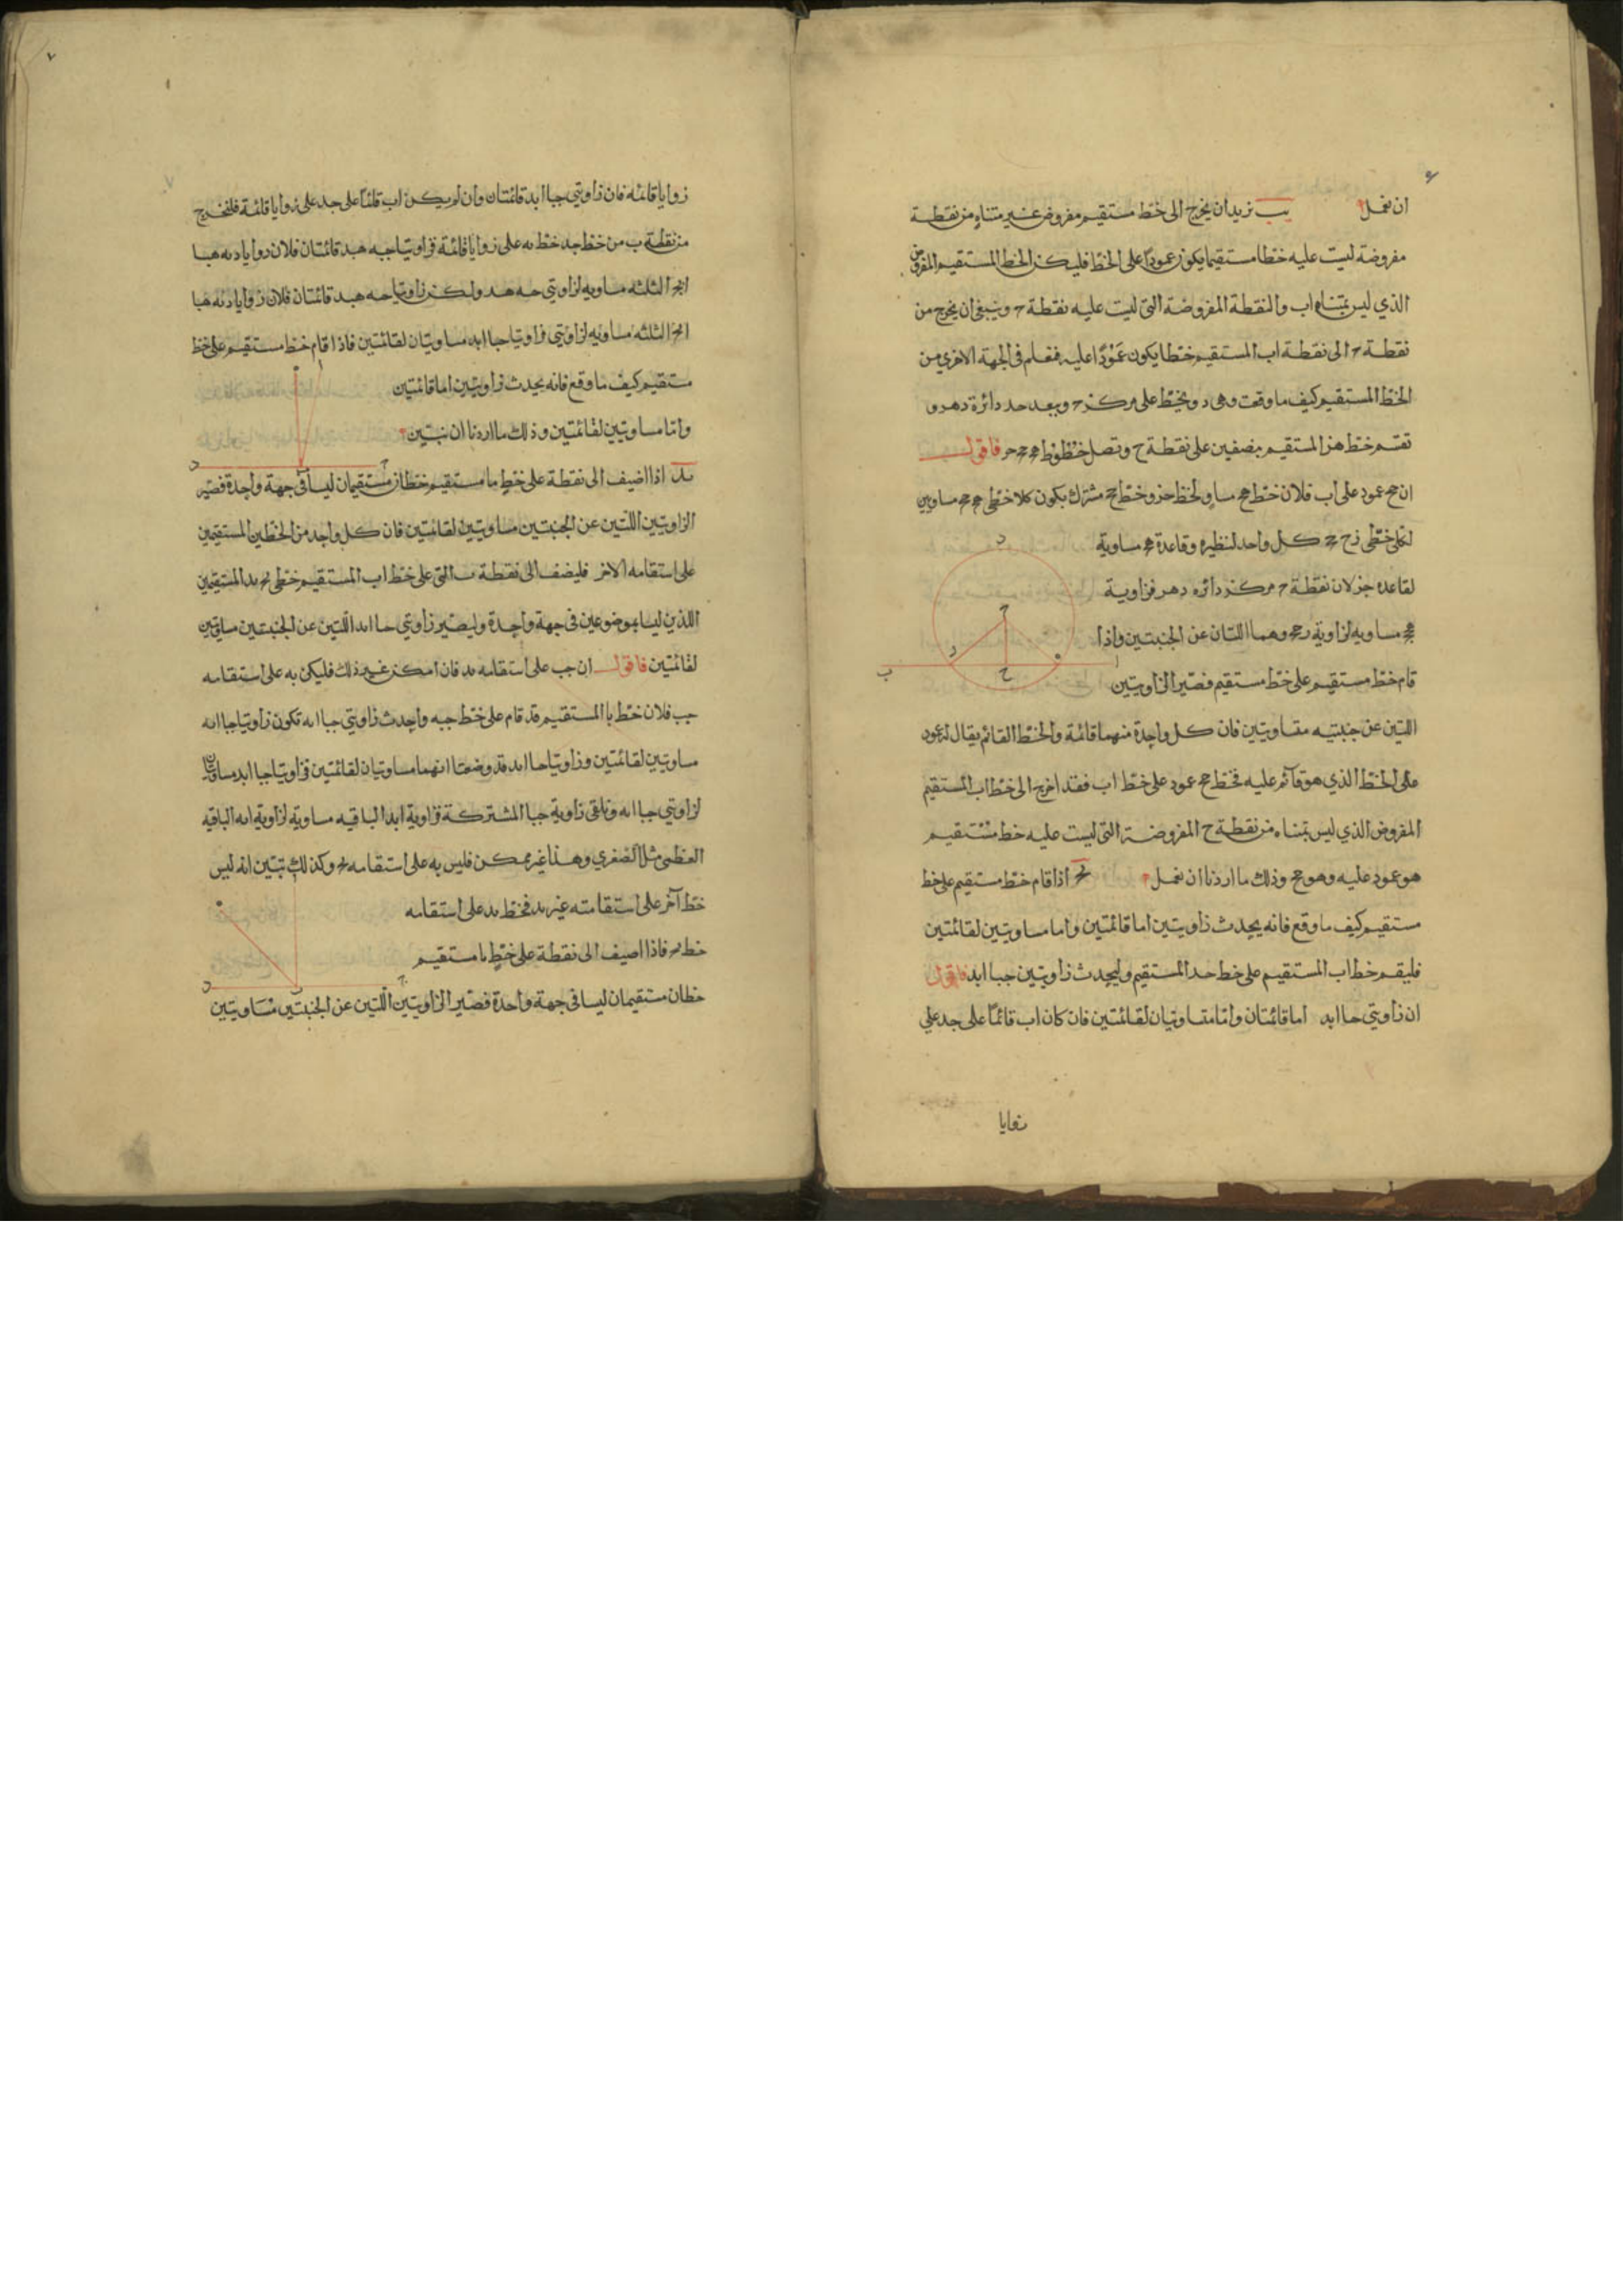 ان نعمل
يب نريد ان نخرج الى خط مستقيم مفروض غير متناه من نقطة
مفروضة ليست عليه خطا مستقيما يكون عمودا على الخط فليكن الخط المستقيم المفروض
الذي ليس بمتناه اب والنقطة المفروضة التي ليست عليه نقطة ح وينبغي ان نخرج من
نقطة ح الى نقطة اب المستقيم خطا يكون عمودا عليه فنعلم في الجهة الاخرى من
الخط المستقيم كيف ما وقعت وهي د ونخط على مركز ح وببعد حد دائرة دهر و
نقسم خط هز المستقيم بنصفين على نقطة ح ونصل خطوط فاقول
ان حج عمود على اب فلان خط هح مساو لخط حز وخط حج مشترك يكون كلا خطي مساويين
لكلي خطي كل واحد لنظيره وقاعدة مساوية
لقاعدة جز لان نقطة ح مركز دائره دهر فزاوية
مساويه لزاوية وهما اللتان عن الجنبتين واذا
قام خط مستقيم على خط مستقيم فصير الزاويتين
اللتين عن جنبتيه متساويتين فان كل واحدة منهما قائمة والخط القائم يقال له عمود
على الخط الذي هو قائم عليه فخط حج عمود على خط اب فقد اخرج الى خط اب المستقيم
المفروض الذي ليس بمتناه من نقطة ح المفروضة التي ليست عليه خط مستقيم
هو عمود عليه وهو حج وذلك ما اردنا ان نعمل
يج اذا قام خط مستقيم على خط
مستقيم كيف ما وقع فانه يحدث زاويتين اما قائمتين واما مساويتين لقائمتين
فليقم خط اب المستقيم على خط حد المستقيم وليحدث زاويتين جبا ابد فاقول
ان زاويتي حبا ابد اما قائمتان واما متساويتان لقائمتين فان كان اب قائما على جد علي
زوايا
زوايا قائمه فان زاويتي جبا ابد قائمتان وان لم يكن اب قائما على جد على زوايا قائمة فلنخرج
من نقطة ب من خط جد خط به على زوايا قائمة فزاويتا جبه هبد قائمتان فلان زوايا دبه هبا
ابج الثلثه مساويه لزاويتي حبه هبد ولكن زاويتا حبه هبد قائمتان فلان زوايا دبه هبا
ابح الثلثه مساويه لزاويتي فزاويتا جبا ابد مساويتان لقائمتين فاذا قام خط مستقيم على خط
مستقيم كيف ما وقع فانه يحدث زاويتين اما قائمتين
واما مساويتين لقائمتين وذلك ما اردنا ان نبين
يد اذا اضيف الى نقطة على خط ما مستقيم خطان مستقيمان ليسا في جهة واحدة فصير
الزاويتين اللتين عن الجنبتين مساويتين لقائمتين فان كل واحد من الخطين المستقيمين
على استقامه الاخر فليضف الى نقطة ب التي على خط اب المستقيم خطي بح بد المستقيمين
اللذين ليسا بموضوعين في جهة واحدة وليصير زاويتي حبا ابد اللتين عن الجنبتين مساويتين
لقائمتين فاقول ان جب على استقامه بد فان امكن غير ذلك فليكن به على استقامه
جب فلان خط با المستقيم قد قام على خط جبه واحدث زاويتي جبا ابه تكون زاويتا جبا ابه
مساويتين لقائمتين وزاويتا حبا ابد قد وضعتا انهما مساويتان لقائمتين فزاويتا جبا ابد مساويتان
لزاويتي جبا ابه ونلقى زاوية جبا المشتركة فزاوية ابد الباقيه مساوية لزاوية ابه الباقية
العظمى مثل الصغرى وهذا غير ممكن فليس به على استقامه بح وكذلك نبين انه ليس
خط آخر على استقامته غير بد فخط بد على استقامه
خط بح فاذا اضيف الى نقطة على خط ما مستقيم
خطان مستقيمان ليسا في جهة واحدة فصير الزاويتين اللتين عن الجنبتين مساويتين